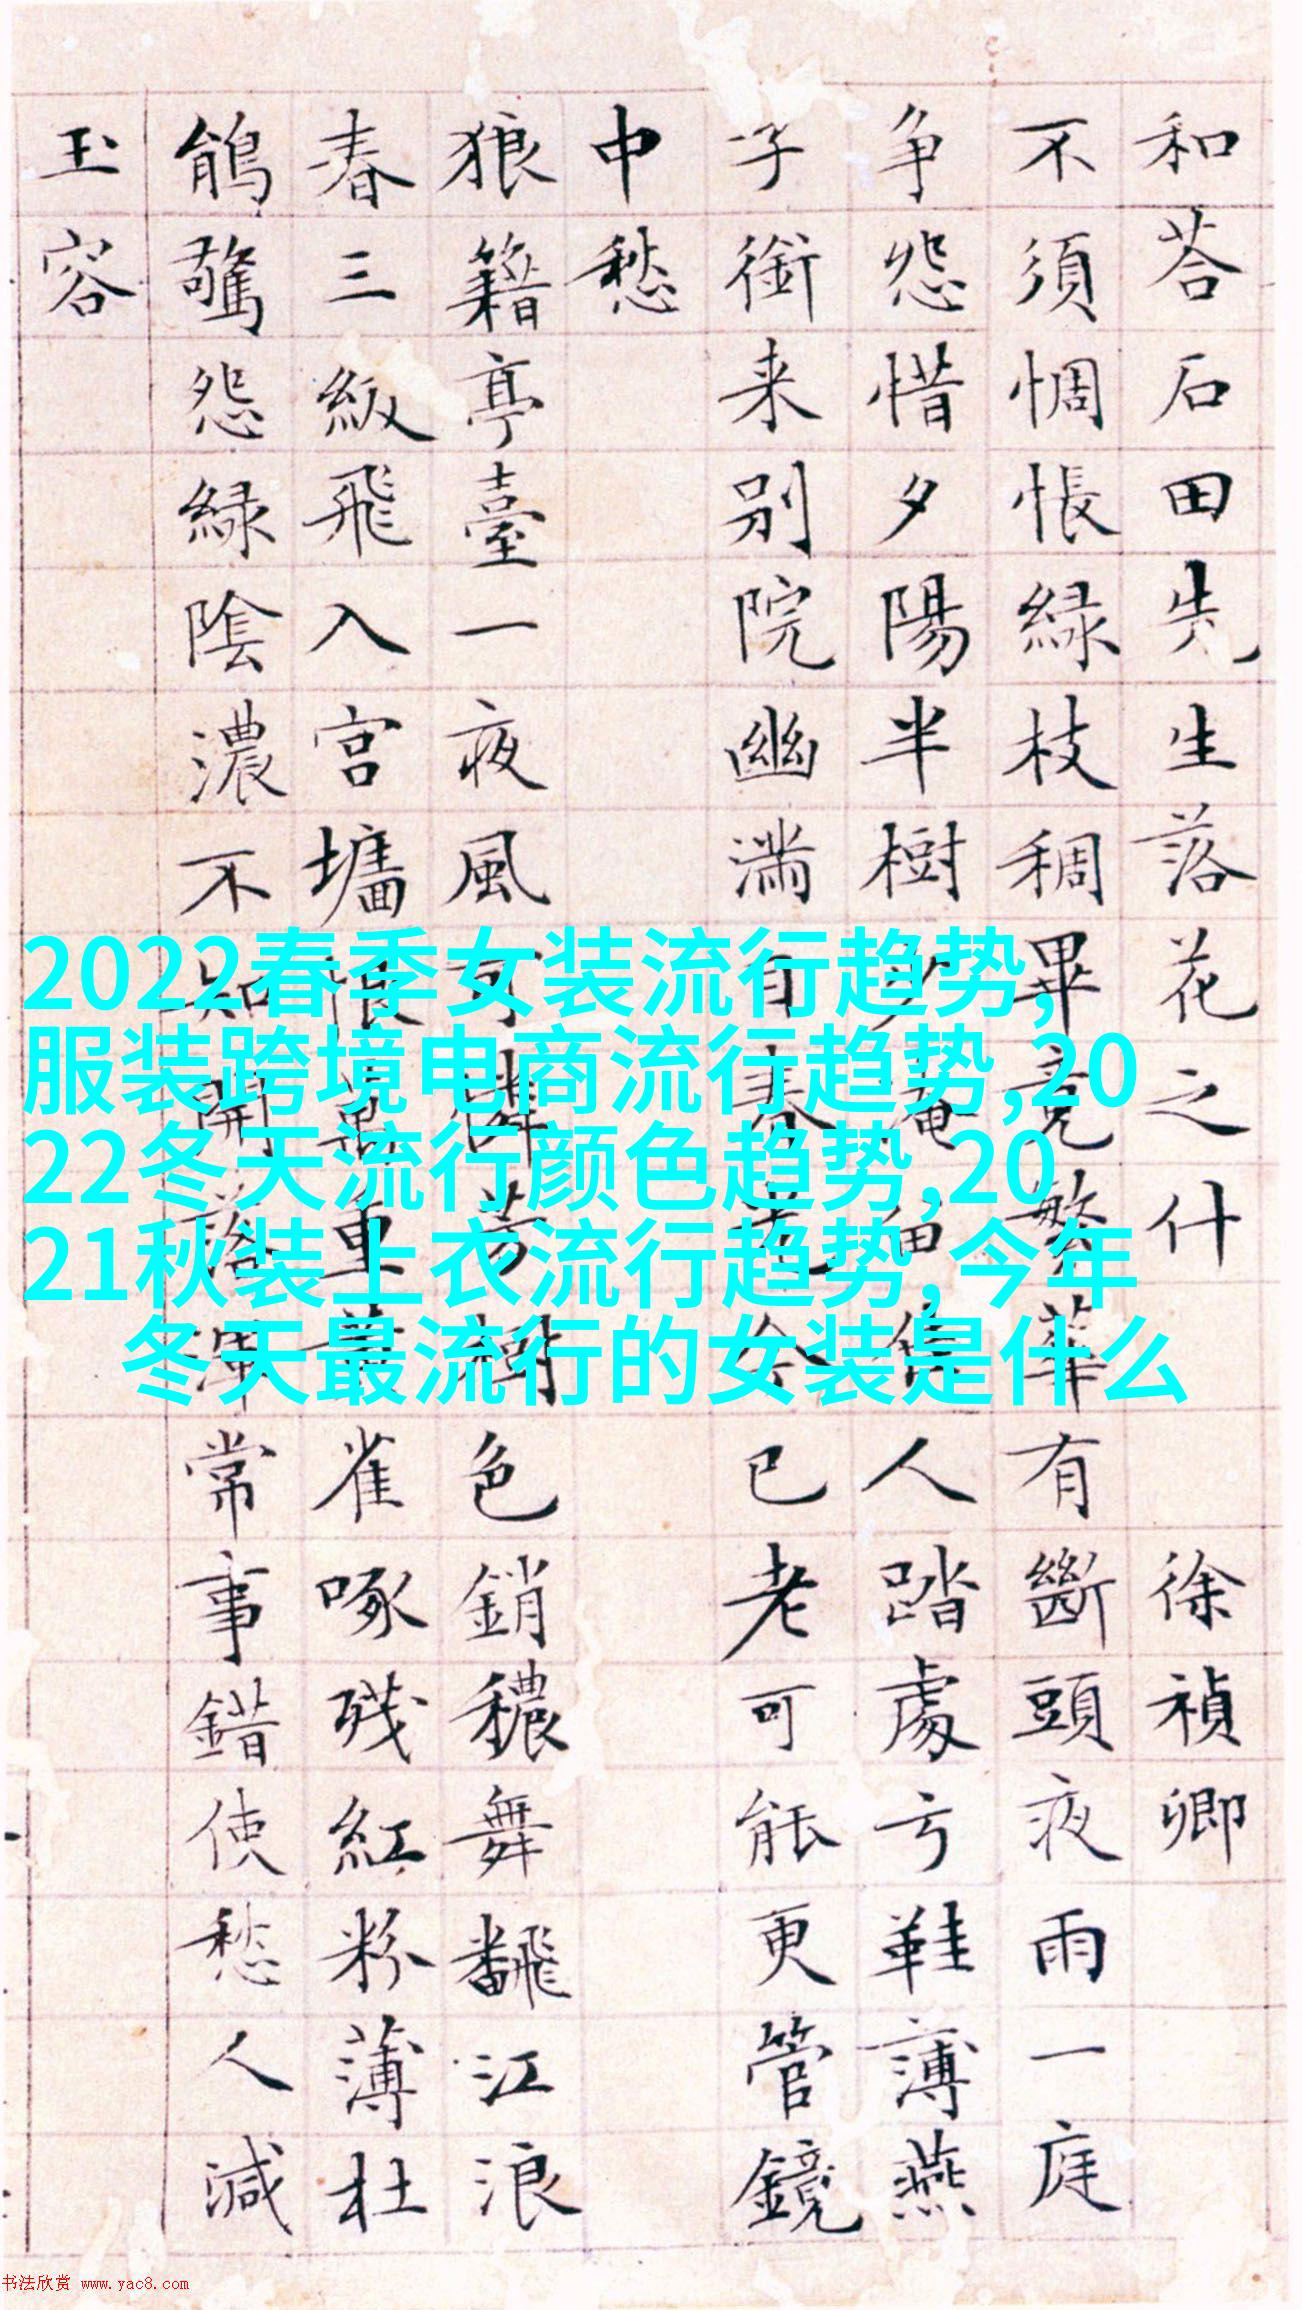 和荅石田先生落花之什 徐禎卿
不須惆悵綠枝稠畢竟繁華有斷頭夜雨一庭
争怨惜夕陽半樹少淹留佳人踏處弓鞋薄燕
子銜来别院幽満目春光今已老可能更管鏡
中愁
狼籍亭臺一夜風可憐芳樹色銷穠舞飜江浪
春三級飛入宮墻恨萬重黃雀啄殘紅粉薄杜
鵑驚怨綠陰濃不知開落渾常事錯使愁人減
玉容
2022春季女装流行趋势,
服装跨境电商流行趋势,20
22冬天流行颜色趋势,20
21秋装上衣流行趋势,今年
冬天最流行的女装是什么
书法欣赏 www.yac8.com